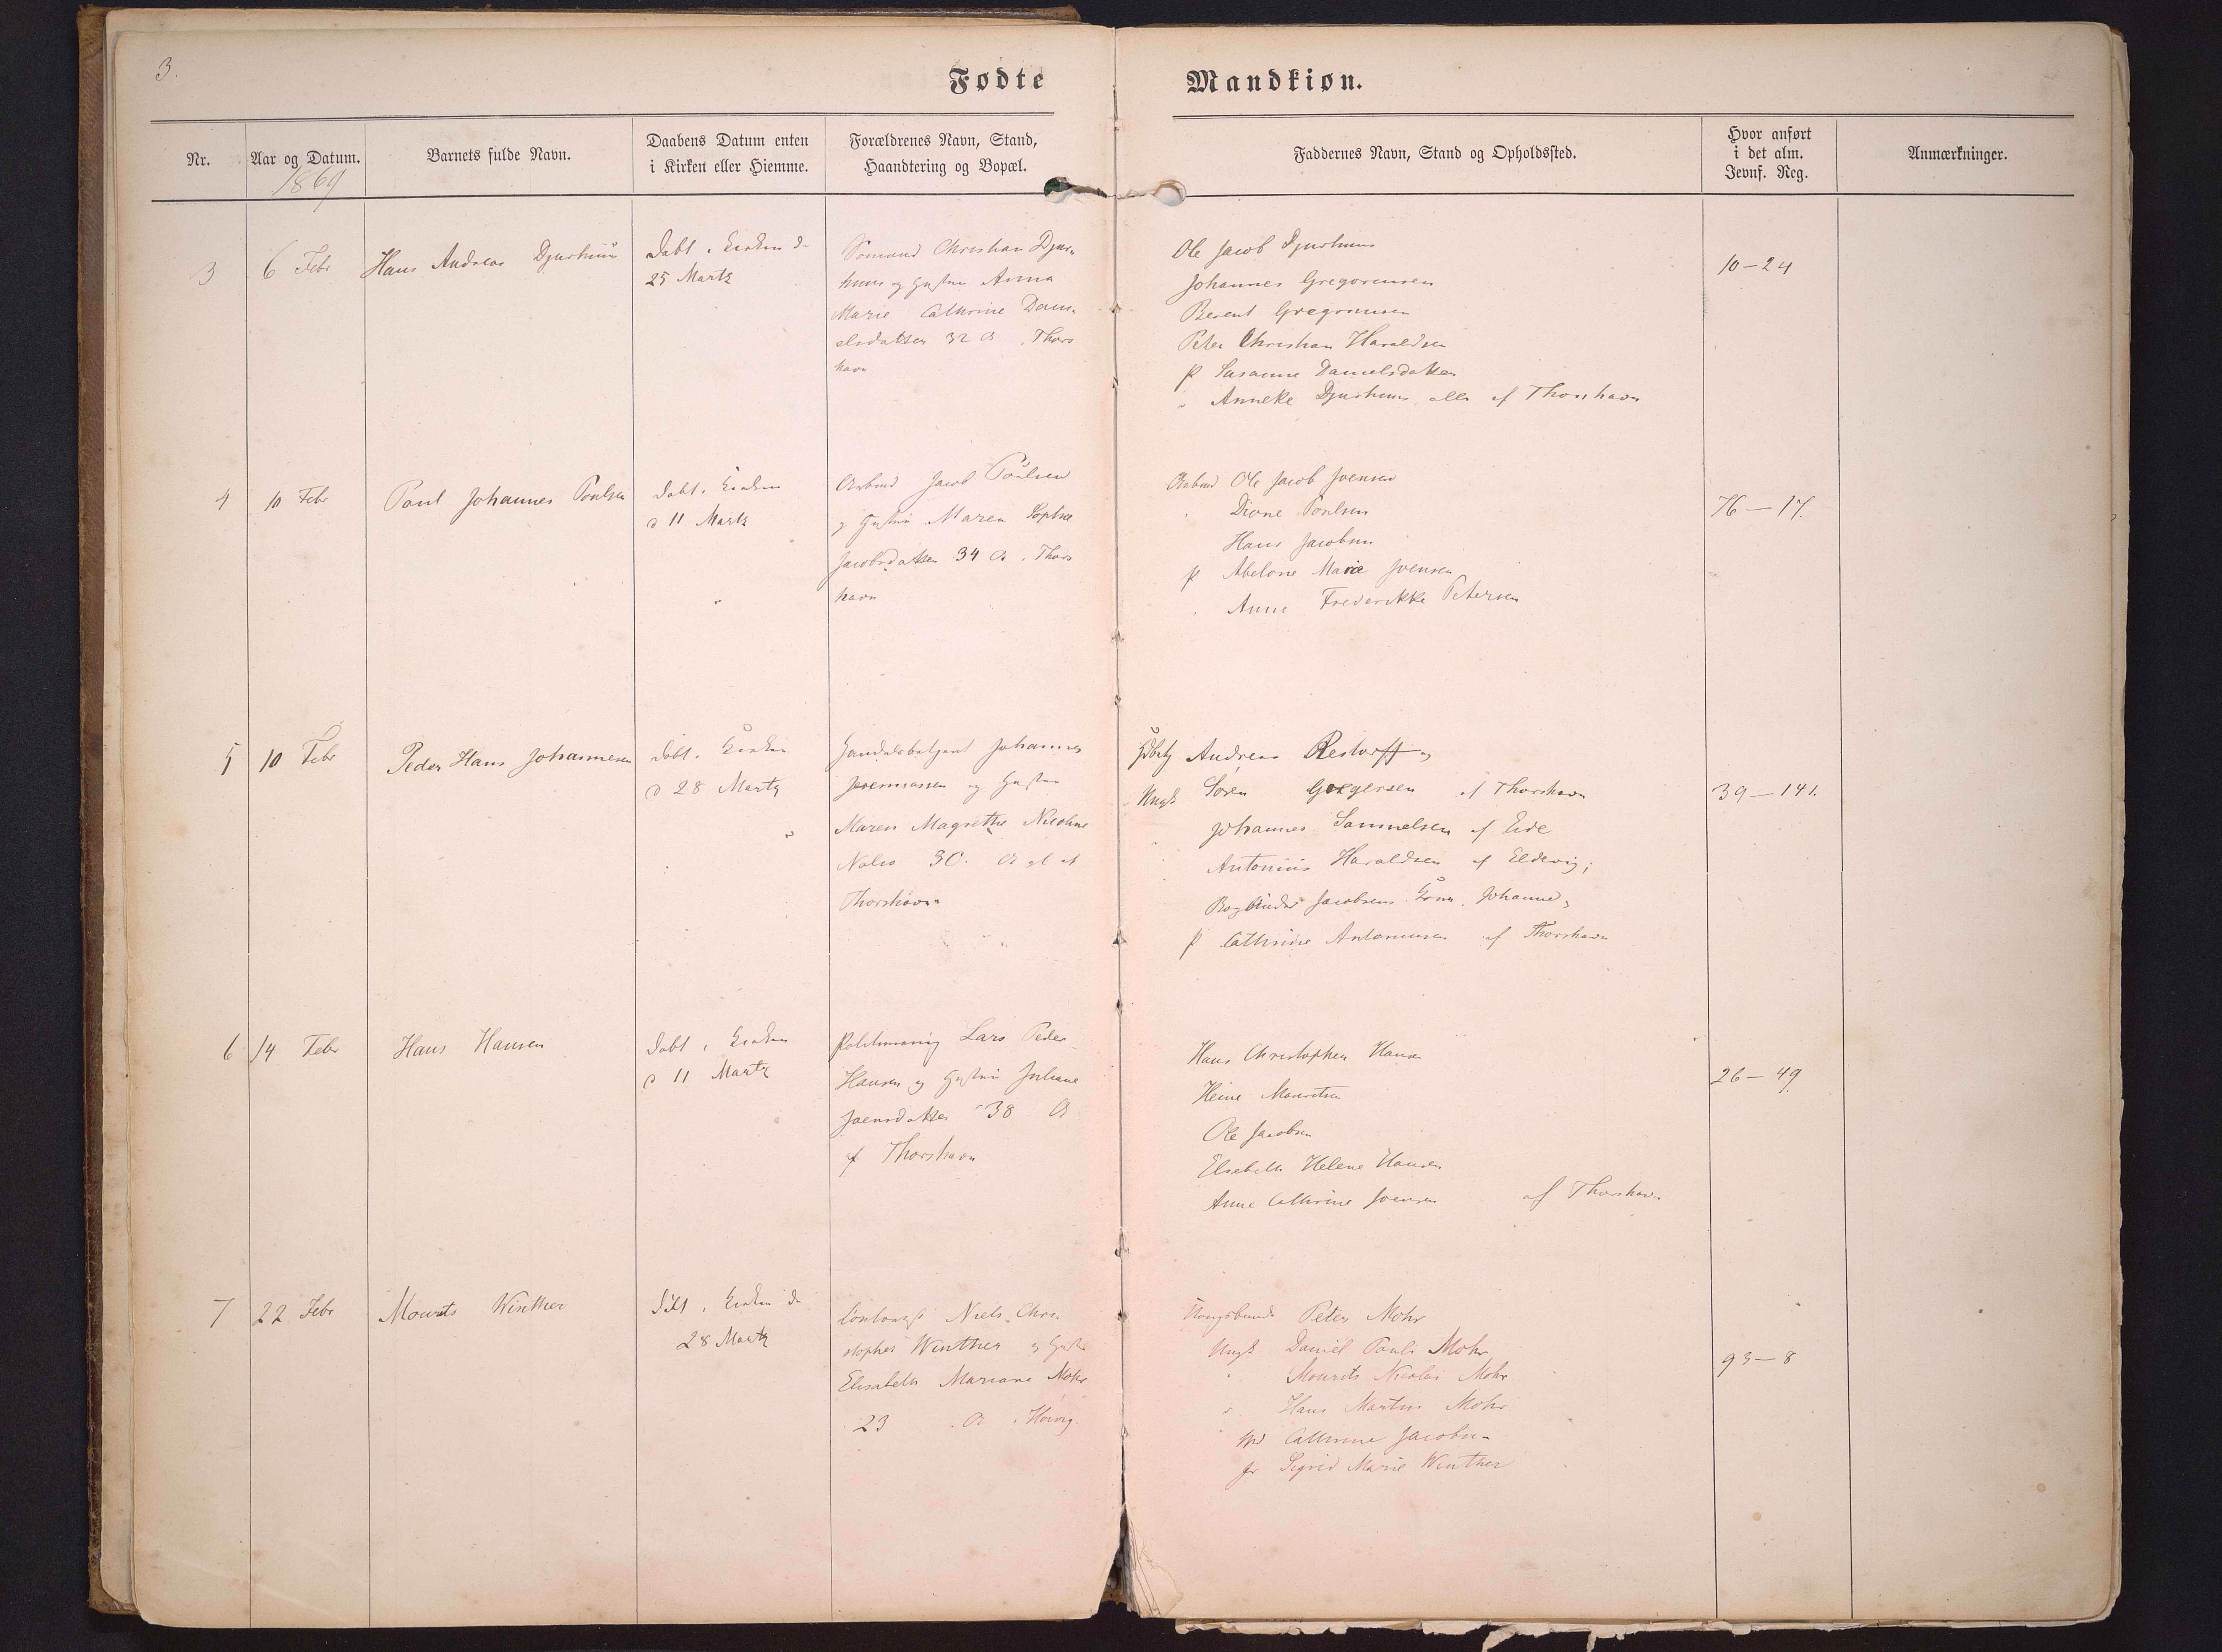 3.
Fødte
Mandkiøn.
Nr.
Aar og Datum.
1869
Barnets fulde Navn.
Daabens Datum enten
i Kirken eller Hiemme.
Forældrenes Navn, Stand,
Haandtering og Bopæl.
Faddernes Navn, Stand og Opholdssted.
Hvor anført
i det alm.
Jevnf. Reg.
Anmærkninger.
3
6 Febr
Hans Andreas Djurhuus
Døbt i Kirken d
25 Marts
Sømand Christian Djur-
huus og Hustru Anna
Marie Cathrine Dani-
elsdatter 32 A i Thors
havn
Ole Jacob Djurhuus
Johannes Gregoriussen
Berent Gregoriussen
Peter Christian Haraldsen
P Susanne Danielsdatter
" Anneke Djurhuus alle af Thorshavn
10-24
4
10 Febr
Poul Johannes Poulsen
Døbt i Kirken
d 11 Marts
Arbmd Jacob Poulsen
og Hustru Maren Sophie
Jacobsdatter 34 A i Thors
havn
Arbmd Ole Jacob Joensen
Dione Poulsen
Hans Jacobsen
P Abelone Marie Joensen
Anne Frederikke Petersen
76-17.
5
10 Febr
Peder Hans Johannesen
Døbt i Kirken
d 28 Marts
Handelsbetjent Johannes
og Hustru
Maren Magrethe Nicoline
Nolsø 30 A af
Thorshavn
Andreas Restorff og
Ungk Søren af Thorshavn
Johannes Samuelsen af Eide
Antonius Haraldsen af Eldevig;
Bogbinder Jacobsens Kone Johanne,
P Cathrine Antoniusen af Thorshavn
39-141.
6
14 Febr
Hans Hansen
Døbt i Kirken
d 11 Marts
Lars Peder
Hansen og Hustru Juliane
Joensdatter 38 A
af Thorshavn
Hans Christopher Hansen
Heine Mouritsen
Ole Jacobsen
Elsebeth Helene Hansen
Anne Cathrine Joensen af Thorshavn
26-49
7
22 Febr
Mourits Winther
Døbt i Kirken d
28 Marts
Niels Chri-
stopher Winther og Hustru
Elisabeth Mariane Mohr
23 A i Hoivig.
Kongsbonde Peter Mohr
Ungk Daniel Pauli Mohr
" Mourits Nicolai Mohr
" Hans Martin Mohr
Cathrine Jacobsen
Sigrid Marie Winther
93-8